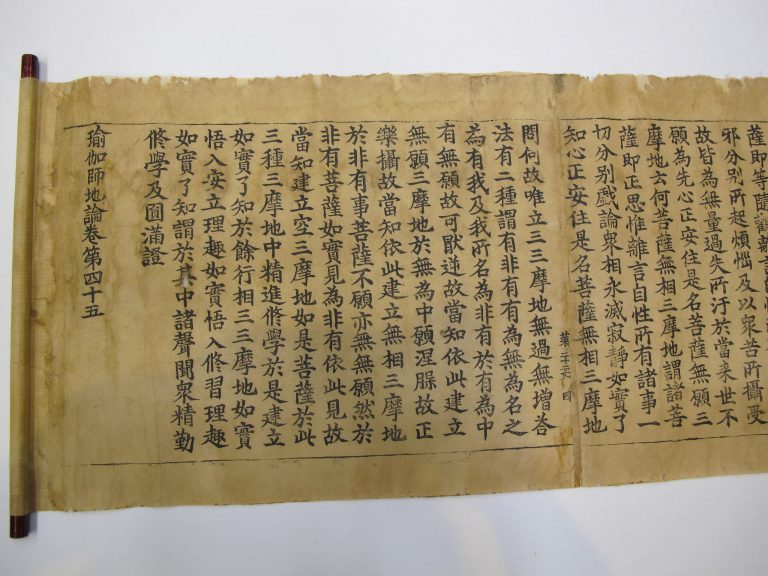 薩即等隨觀離言說
邪分別所起煩惱及以衆苦所攝受
故皆為無量過失所汙於當来世不
願為先心正安住是名菩薩無願三
摩地云何菩薩無相三摩地謂諸菩
薩即正思惟離言自性所有諸事一
切分別戲論衆相永滅寂靜如實了
知心正安住是名菩薩無相三摩地
問何故唯立三三摩地無過無增荅
法有二種謂有非有有為無為名之
為有我及我所名為非有於有為中
有無願故可猒逆故當知依此建立
無願三摩地於無為中願涅槃故正
樂攝故當知依此建立無相三摩地
於非有事菩薩不願亦無無願然於
非有菩薩如實見為非有依此見故
當知建立空三摩地如是菩薩於此
三種三摩地中精進修學於是建立
如實了知於餘行相三三摩地如實
悟入安立理趣如實悟入修習理趣
如實了知謂於其中諸聲聞衆精勤
修學及圓滿證
瑜伽師地論卷第四十五